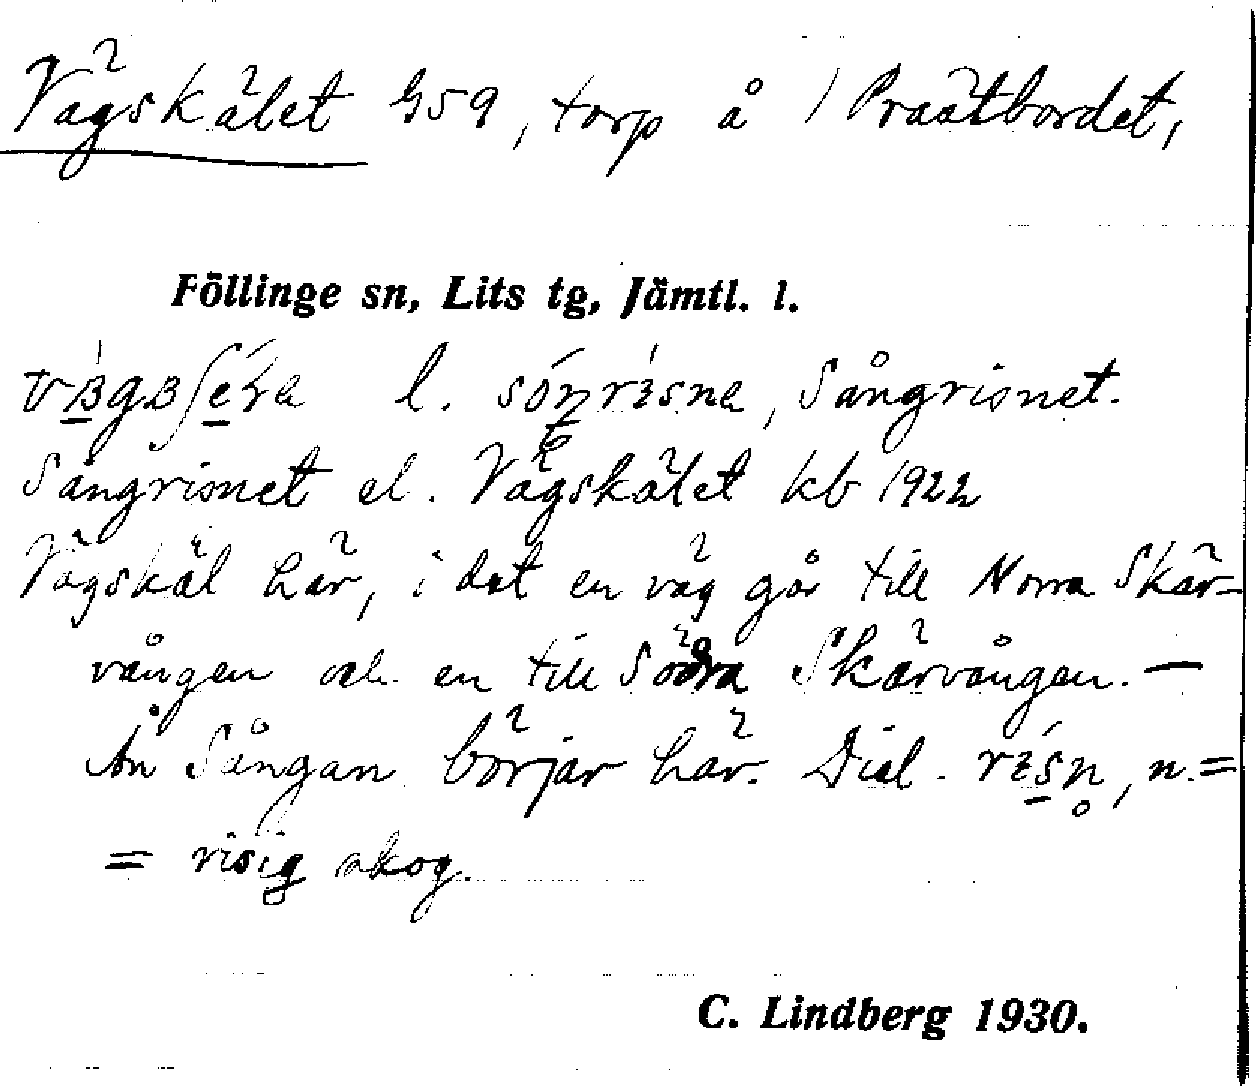 Vägskälet G59, torp å 1 Prästbordet,
Föllinge sn, Lits tg, Jämtl. l.
l. Sångrisnet.
Sångrisnet el. Vägskälet kb 1922
Vägskäl här, i det en väg går till Norra Skär-
vången och en till Södra Skärvången. —
Ån Sången börjar här. Dial. n. =
= risig skog.
C. Lindberg 1930.